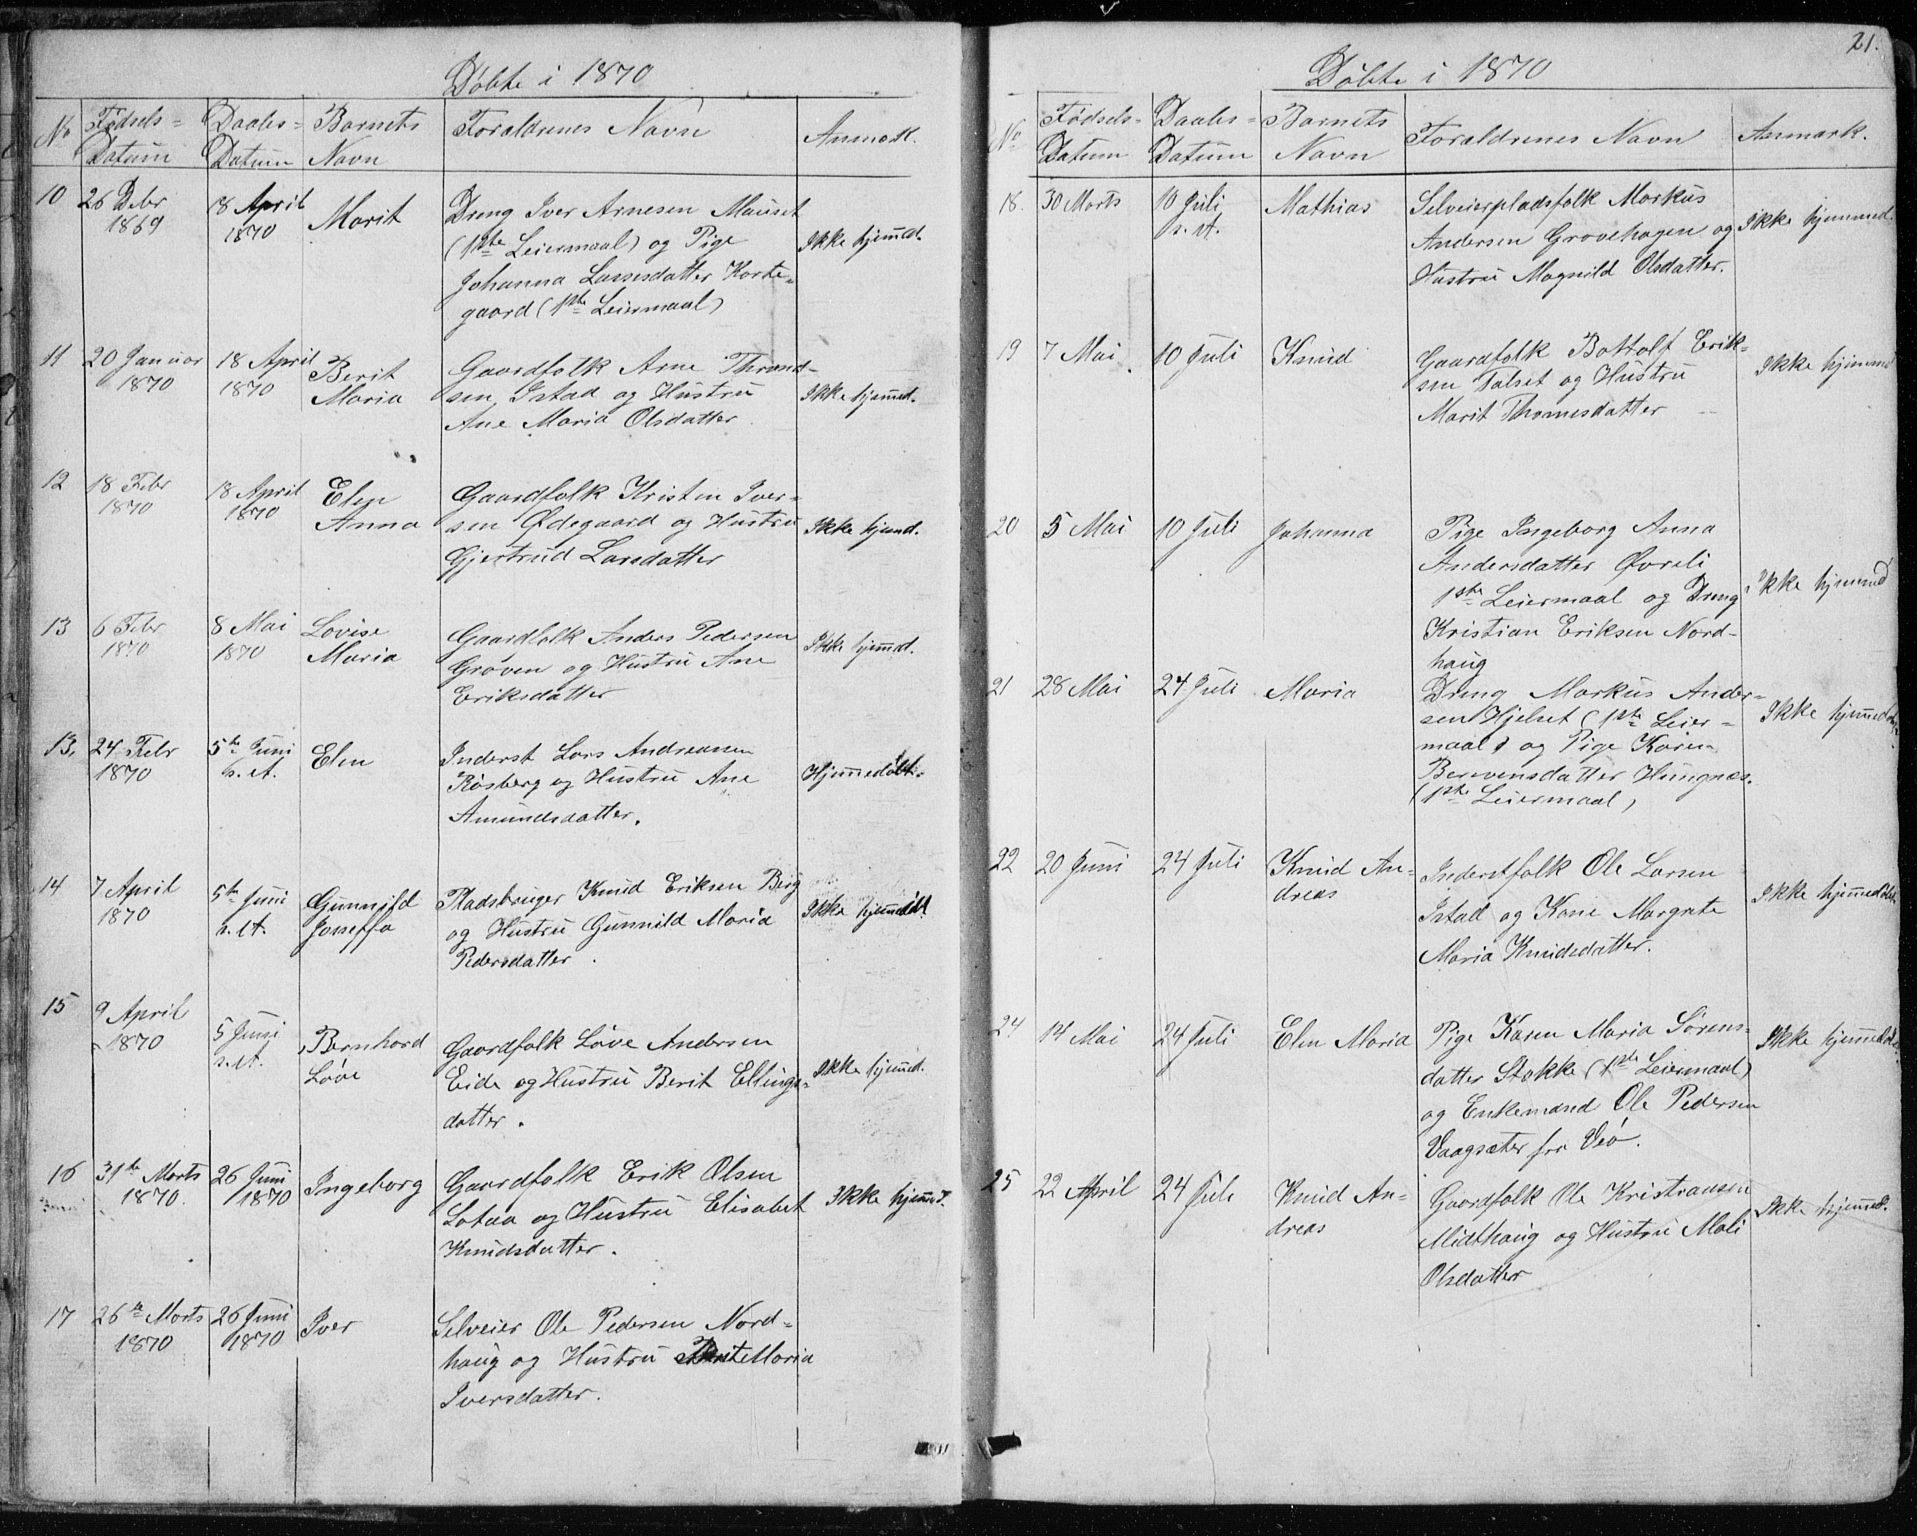 Döbte i 1870
No Fødsels= Daabs= Barnets Foraldrenes Navn Anmerk.
Datum Datum Navn
10 26 Debr 18 April Marit Dreng Iver Arnesen Mauset Ikke hjemmed.
1869 1870 (1ste Leiermaal) og Pige
Johanna Larsesdatter Korte=
gaard (1ste Leiermaal)
11 20 Januar 18 April Berit Gaardfolk Arne Thrond= Ikke hjemmed.
1870 1870 Maria sen Istad og Hustru
Ane Maria Olsdatter
12 18 Febr 18 April Elen Gaardfolk Kristen Iver= Ikke hjemd.
1870 1870 Anna sen Ødegaard og Hustru
Gjertrud Larsdatter
13 6 Febr 8 Mai Lovise Gaardfolk Anders Pedersen Ikke hjemmed.
1870 1870 Maria Grøven og Hustru Ane
Eriksdatter
13. 24 Febr 5te Juni Elen Inderst Lars Andreasen Hjemmedøbt.
1870 s. st. Røsberg og Hustru Ane
Amundsdatter.
14 7 April 5te Juni Gunnild Pladsbruger Knud Eriksen Berg Ikke hjemmedbt
1870 s. st. Joneffa og Hustru Gunnild Maria
Pedersdatter.
15 9 April 5 Juni Bernhard Gaardfolk Løve Andersen Ikke hjemmed.
1870 s. st. Løve Eide og Hustru Berit Ellings=
datter.
16 31te Marts 26 Juni Ingeborg Gaardfolk Erik Olsen Ikke hjemmed.
1870. 1870 Lotaa og Hustru Elisabet
Knudsdatter.
17 26te Marts 26 Juni Iver Selveier Ole Pedersen Nord=
1870 1870 haug og Hustru Marit Maria
Iversdatter.
21.
Döbte i 1870
No Fødsels- Daabs= Barnets Foraldrenes Navn Anmark.
Datum Datum Navn
18. 30 Marts 10 Juli Mathias Selveierpladsfolk Markus Ikke hjemmed.
s. st. Andersen Grovehagen og
Hustru Magnild Olsdatter.
19 7 Mai 10 Juli Knud Gaardfolk Bottolf Erik= Ikke hjemmed
sen Talset og Hustru
Marit Thomesdatter
20 5 Mai 10 Juli Johanna Pige Ingeborg Anna Ikke hjemmed
Andersdatter Øvreli
1ste Leiermaal og Dreng
Kristian Eriksen Nord-
haug
21 28 Mai 24 Juli Maria Dreng Markus Ander= Ikke hjemmedøbt.
sen Hjelset (1ste Leier=
maal) og Pige Karen
Berevensdatter Hungnæs.
(1ste Leiermaal)
22 20 Juni 24 Juli Knud An= Inderstfolk Ole Larsen Ikke hjemmedøbt.
dreas Istad og Kone Margrete
Maria Knudsdatter.
24 14 Mai 24 Juli Elen Maria Pige Karen Maria Sørens= Ikke hjemmedøbt.
datter Stokke (1ste Leiermaal)
og Enkemand Ole Pedersen
Vaagsæter fra Veø.
25 22 April 24 Juli Knud An= Gaardfolk Ole Kristiansen Ikke hjemmed.
dreas Midthaug og Hustru Mali
Olsdatter